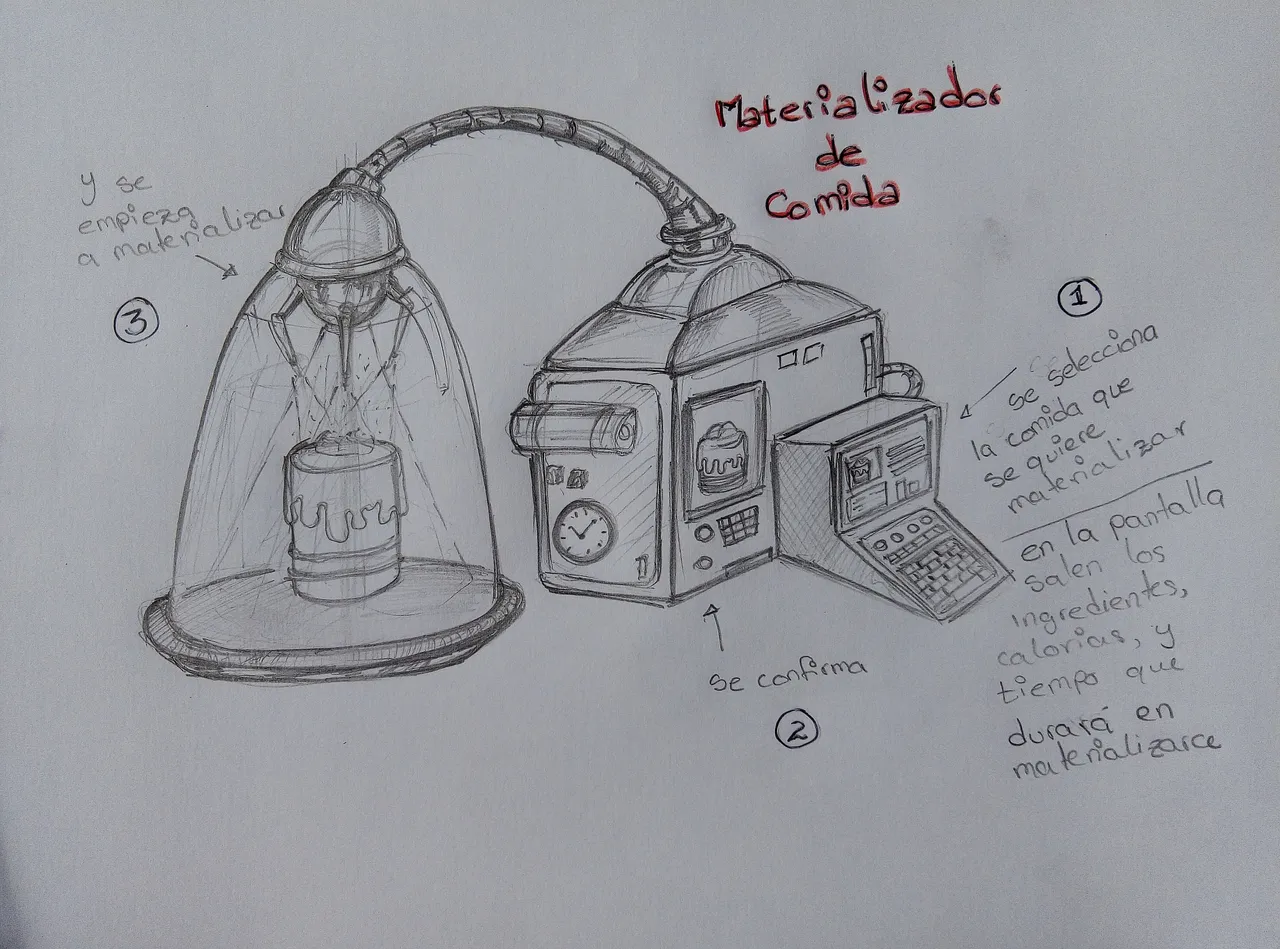 Materializador
de
Comida
1
se selecciona
la comida que
se quiere
materializar
en la pantalla
salen los
ingredientes,
calorias, y
tiempo que
durará en
materializarce
se confirma
2
y se
empieza
a materializar
3